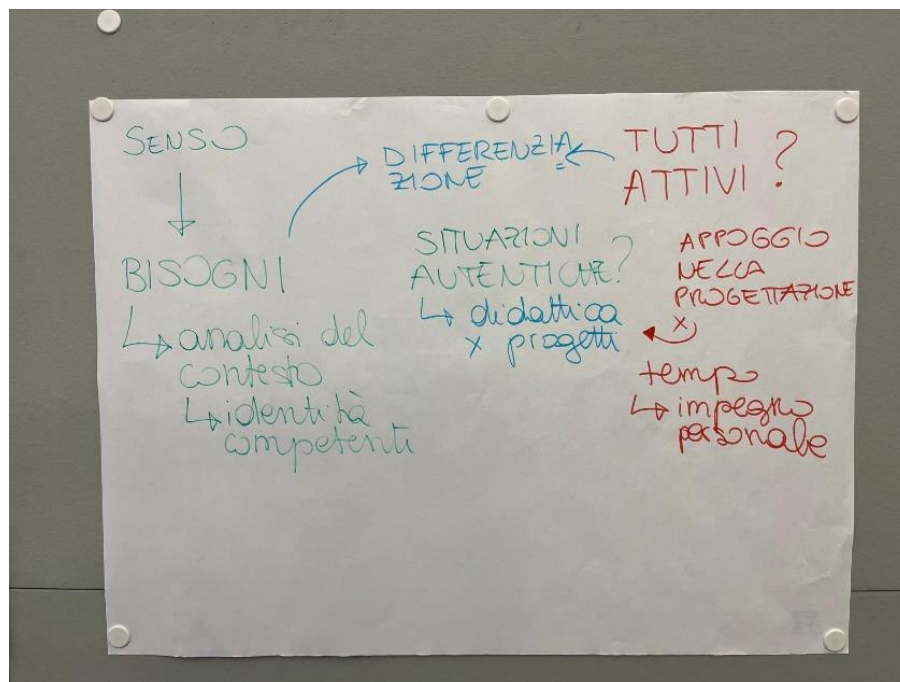 SENSO
↓
BISOGNI
↳ analisi del
contesto
↳ identità
competenti
DIFFERENZIA
ZIONE
SITUAZIONI
AUTENTICHE?
↳ didattica
x progetti
TUTTI
ATTIVI ?
APPOGGIO
NELLA
PROGETTAZIONE
x
tempo
↳ impegno
personale